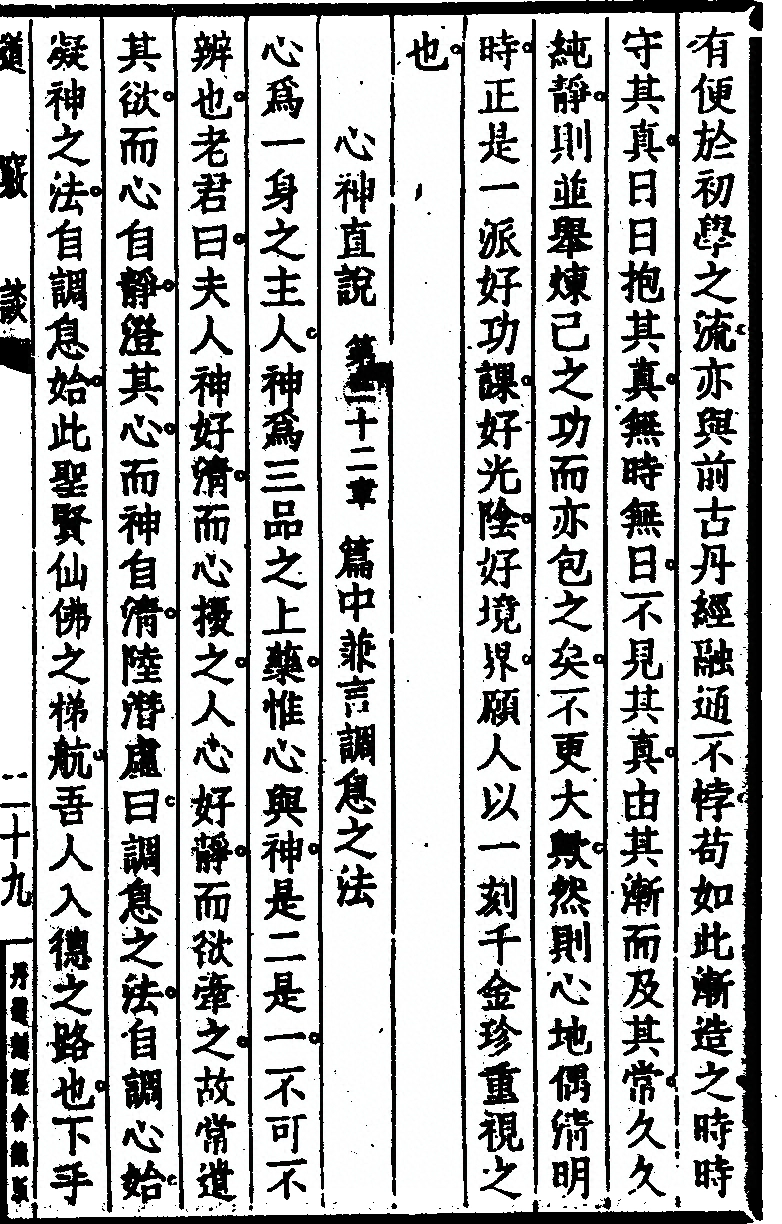 有便於初學之流亦與前古丹經融通不悖苟如此漸造之時時
守其真日日抱其真無時無日不見其真由其漸而及其常久久
純靜則並舉煉己之功而亦包之矣不更大歟然則心地偶清明
時正是一派好功課好光陰好境界願人以一刻千金珍重視之
也
心神直說 第十二章 篇中兼言調息之法
心爲一身之主人神爲三品之上藥惟心與神是二是一不可不
辨也老君曰夫人神好清而心擾之人心好靜而欲牽之故常遣
其欲而心自靜澄其心而神自清陸潛虛曰調息之法自調心始
凝神之法自調息始此聖賢仙佛之梯航吾人入德之路也下手
道竅談
二十九
丹道刻經會